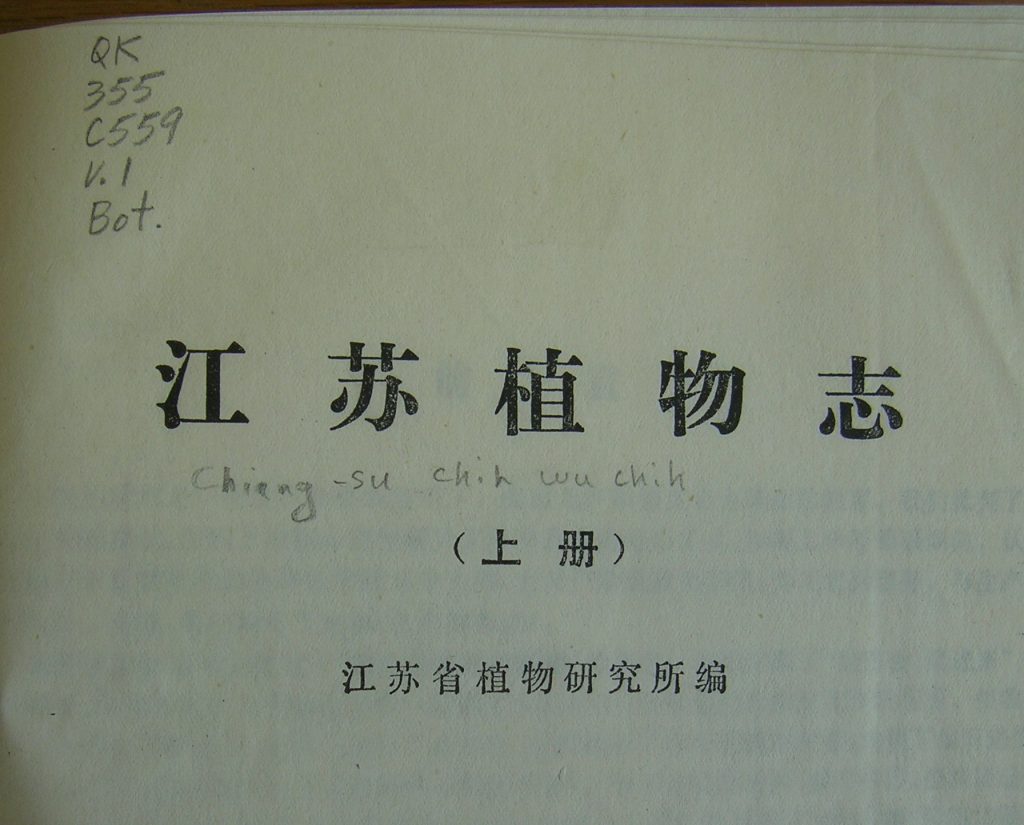 QK
355
C559
V.1
Bot.
江苏植物志
Chiang-su chih wu chih
（上册）
江苏省植物研究所编